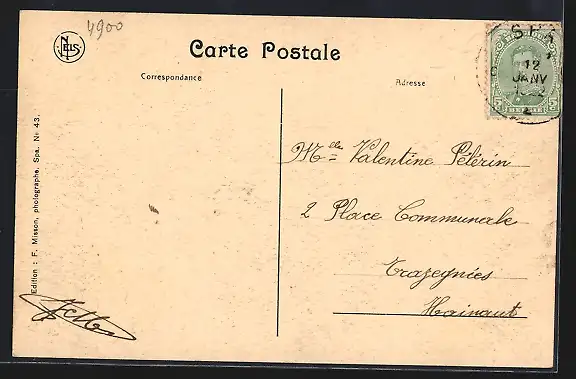 4900
NELS
Carte Postale
Correspondance
Adresse
SPA
12
JANV
5 5
Mlle Valentine Pélerin
2 Place Communale
Trazegnies
Hainaut
Edition : F. Misson, photographe, Spa. No 43.